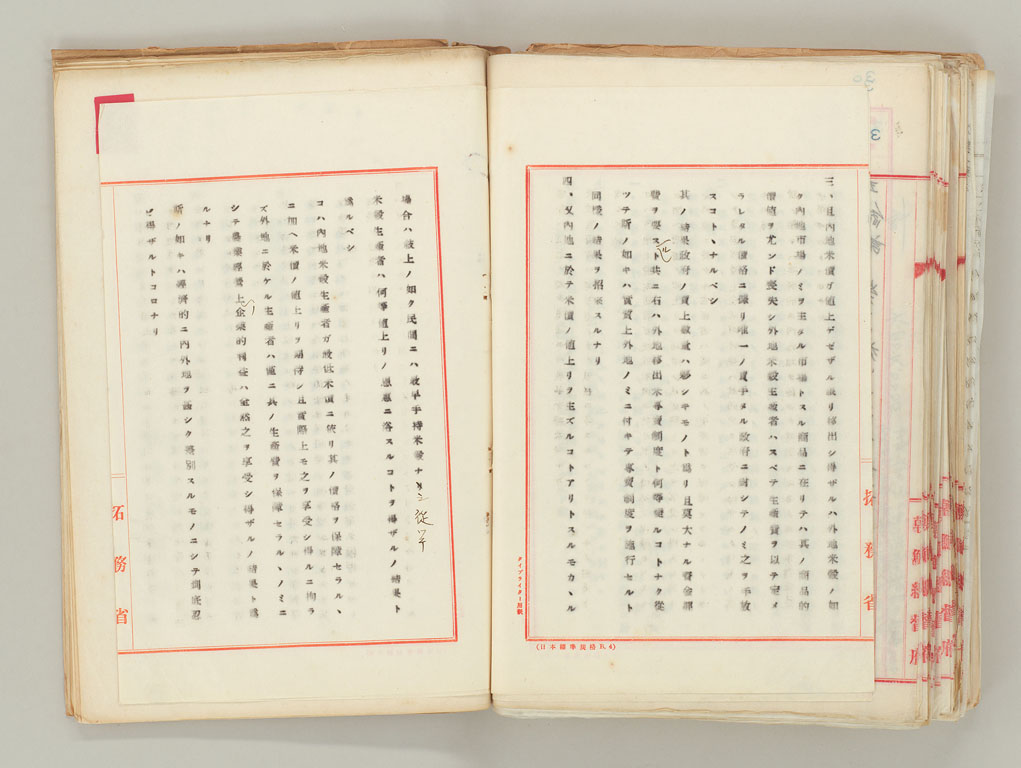 三、且内地米價ガ値上デセザル限リ移出シ得ザルハ外地米穀ノ如
ク内地市場ノミヲ主タル市場トスル商品ニ在リテハ其ノ商品的
價値ヲ尤ンド喪失シ外地米穀生産者ハスベテ生産費ヲ以テ定メ
ラレタル價格ニ依リ唯一ノ買手タル政府ニ對シテノミ之ヲ手放
スコトヽナルベシ
其ノ結果政府ノ買上數量ハ夥シキモノト爲リ且莫大ナル資金ヲ
費ヲ要スルト共ニ右ハ外地移出米專賣制度ト何等變ルコトナク從
ツテ斯ノ如キハ實質上外地ノミニ付キテ專賣制度ヲ施行セルト
同樣ノ結果ヲ招來スルナリ
四、又内地ニ於テ米價ノ値上リヲ生ズルコトアリトスルモカヽル
場合ハ敍上ノ如ク民間ニハ手持米穀ナク從テ
米穀生産者ハ何等値上リノ恩惠ニ浴スルコトヲ得ザルノ結果ト
爲ルベシ
コハ内地米穀生産者ガ最低米價ニ依リ其ノ價格ヲ保障セラルヽ
ニ加ヘ米價ノ値上リヲ期待シ且實際上モ之ヲ享受シ得ルニ拘ラ
ズ外地ニ於ケル生産者ハ僅ニ其ノ生産費ヲ保障セラルヽノミニ
シテ農業經營上ノ企業的利益ハ全然之ヲ享受シ得ザルノ結果ト爲
ルナリ
斯ノ如キハ經濟的ニ内外地ヲ甚シク差別スルモノニシテ到底忍
ビ得ザルトコロナリ
拓務省
拓務省
タイプライター用紙
(日本標準規格B.4)
朝鮮總督府